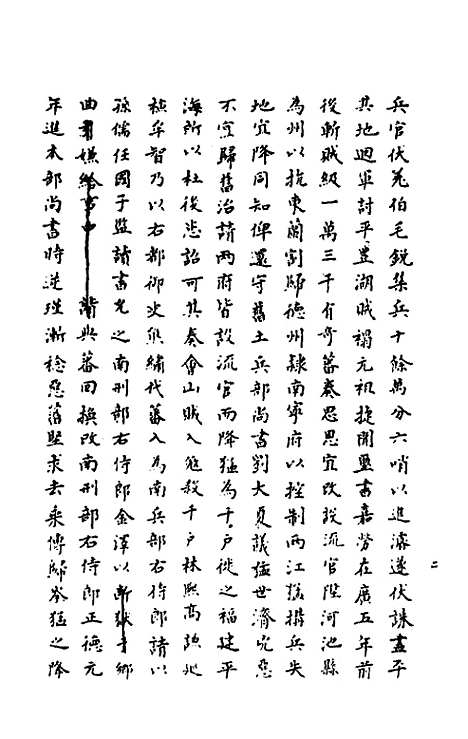 兵官伏羌伯毛銳集兵十餘萬分六哨以進濬遂伏誅盡平
其地迴軍討平豊湖賊禍元祖捷聞璽書嘉勞在廣五年前
後斬賊級一萬三千有奇蕃奏思恩宜改設流官陞河池縣
為州以抗東蘭割歸德州隸南寧府以控制兩江猛擅兵失
地宜降同知俾還守舊土兵部尚書劉大夏議猛世濟兇惡
不宜歸舊治請兩府皆設流官而降猛為千戶徙之福建平
海所以杜後患詔可其奏會山賊入寇殺千戶林熙高
禎牟智乃以右都御史熊繡代蕃入為南兵部右侍郎請以
孫儒任國子監讀書允之南刑部右侍郎金澤以斬獄于鄉
曲嫌給事中請與蕃回換改南刑部右侍郎正德元
年進本部尚書時逆瑾漸稔惡蕃堅求去乘傳歸岑猛之降
二